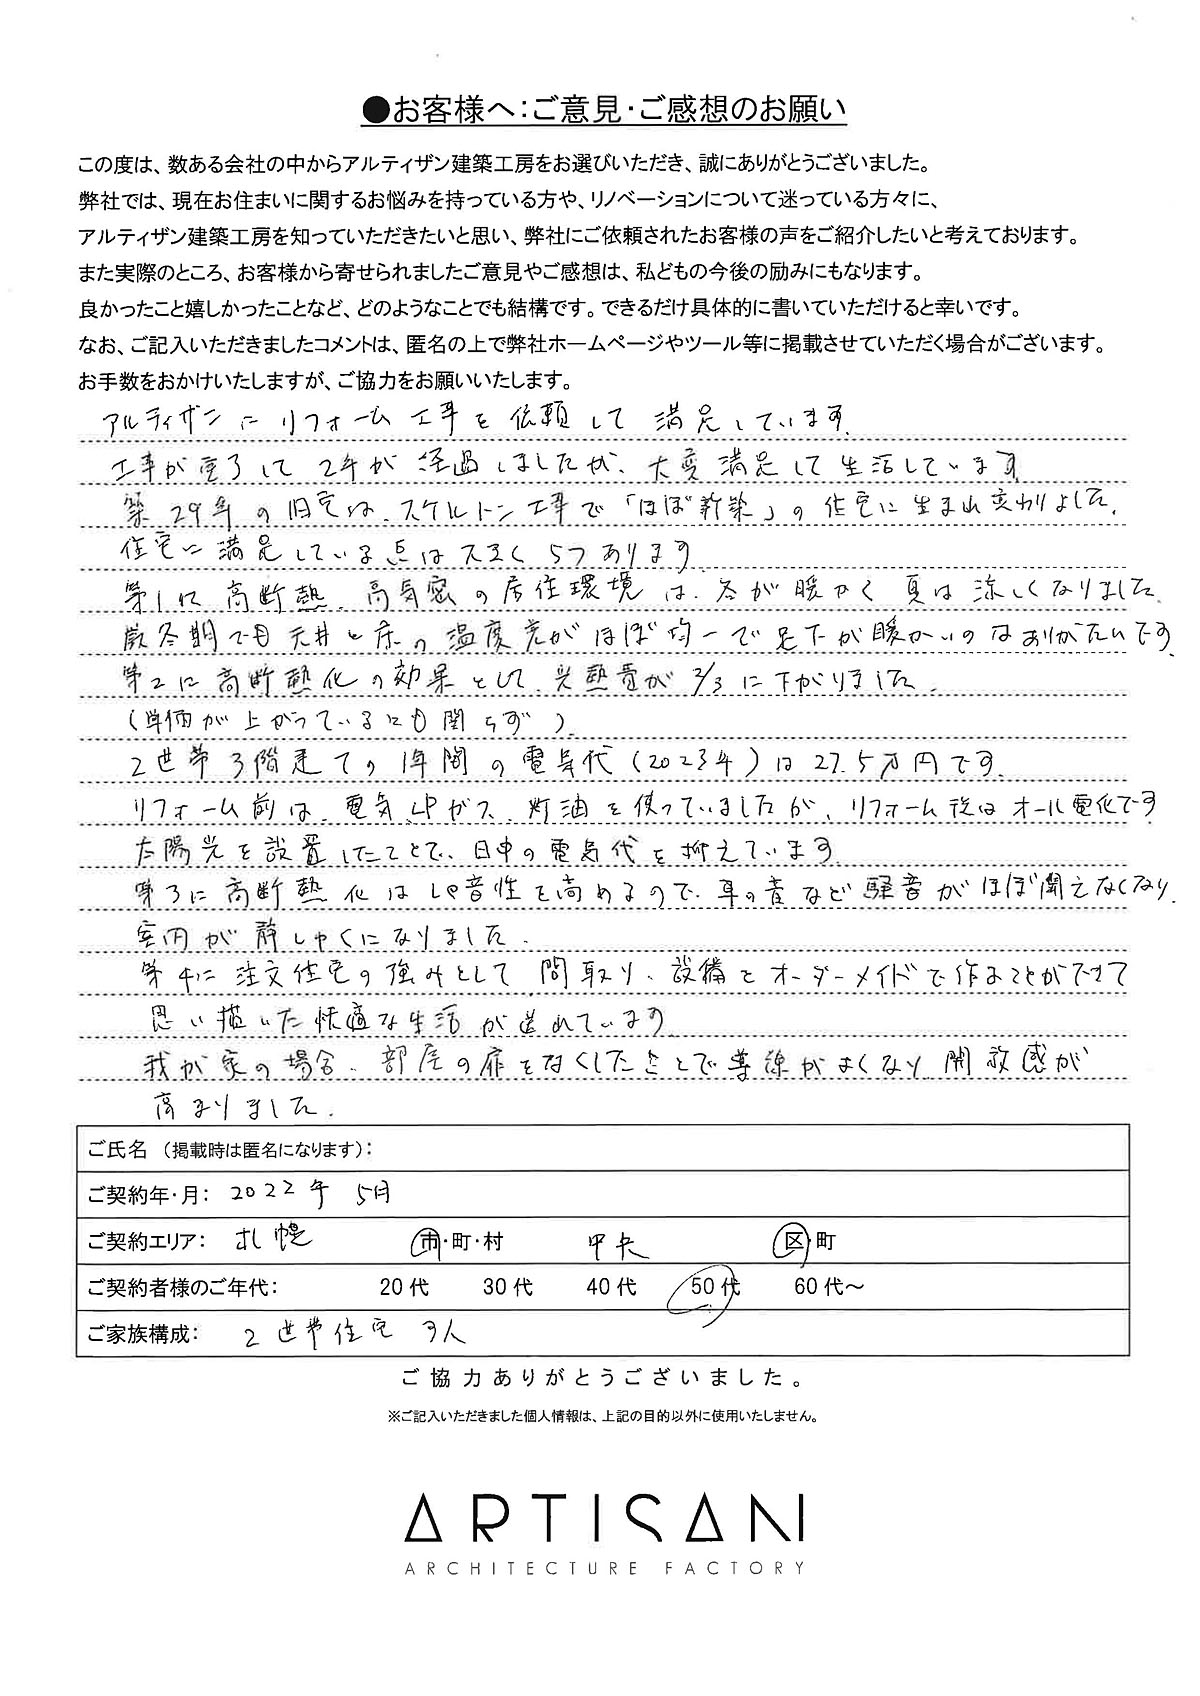 ●お客様へ：ご意見・ご感想のお願い
この度は、数ある会社の中からアルティザン建築工房をお選びいただき、誠にありがとうございました。
弊社では、現在お住まいに関するお悩みを持っている方や、リノベーションについて迷っている方々に、
アルティザン建築工房を知っていただきたいと思い、弊社にご依頼されたお客様の声をご紹介したいと考えております。
また実際のところ、お客様から寄せられましたご意見やご感想は、私どもの今後の励みにもなります。
良かったこと嬉しかったことなど、どのようなことでも結構です。できるだけ具体的に書いていただけると幸いです。
なお、ご記入いただきましたコメントは、匿名の上で弊社ホームページやツール等に掲載させていただく場合がございます。
お手数をおかけいたしますが、ご協力をお願いいたします。
アルティザンにリフォーム工事を依頼して満足しています。
工事が完了して2年が経過しましたが、大変満足して生活しています。
築29年の旧宅は、スケルトン工事で「ほぼ新築」の住宅に生まれ変わりました。
住宅に満足している点は大きく5つあります。
第1に高断熱、高気密の居住環境は、冬が暖かく夏は涼しくなりました。
厳冬期でも天井と床の温度差がほぼ均一で足下が暖かいのはありがたいです。
第2に高断熱化の効果として、光熱費が2/3に下がりました。
(単価が上がっているにも関らず)
2世帯3階建ての1年間の電気代(2023年)は27.5万円です。
リフォーム前は、電気、LPガス、灯油を使っていましたが、リフォーム後はオール電化です
太陽光を設置したことで、日中の電気代を抑えています
第3に高断熱化はしゃ音性を高めるので、車の音など騒音がほぼ聞えなくなり、
室内が静しゅくになりました。
第4に注文住宅の強みとして間取り、設備をオーダーメイドで作ることができて
思い描いた快適な生活が送れています
我が家の場合、部屋の扉をなくしたことで導線がよくなり、開放感が
高まりました。
ご氏名（掲載時は匿名になります）：
ご契約年・月： 2022年 5月
ご契約エリア： 札幌 市・町・村 中央 区・町
ご契約者様のご年代： 20代 30代 40代 50代 60代～
ご家族構成： 2世帯住宅 3人
ご協力ありがとうございました。
※ご記入いただきました個人情報は、上記の目的以外に使用いたしません。
ARTISAN
ARCHITECTURE FACTORY